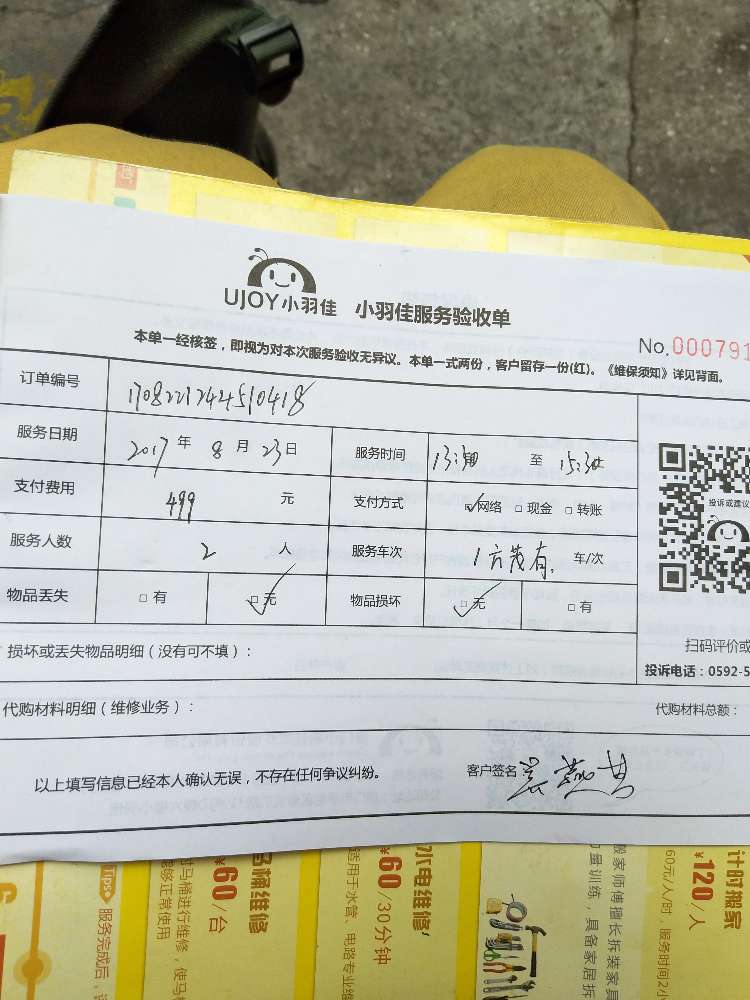 UJOY小羽佳 小羽佳服务验收单
No.000791
本单一经核签，即视为对本次服务验收无异议。本单一式两份，客户留存一份(红)。《维保须知》详见背面。
订单编号
服务日期 2017 年 8 月 23 日 服务时间 至
支付费用 499 元 支付方式 网络 现金 转账
服务人数 2 人 服务车次 车/次
物品丢失 有 无 物品损坏 无 有
投诉或建议
扫码评价或
损坏或丢失物品明细（没有可不填）：
投诉电话：0592-5
代购材料明细（维修业务）：
代购材料总额：
以上填写信息已经本人确认无误，不存在任何争议纠纷。
客户签名
Tips
服务完成后，
马桶维修
¥60/台
马桶进行维修，使马
能够正常使用
水电维修
¥60/30分钟
适用于水管、电路专业维
搬家师傅擅长拆装家具
力量训练，具备家居拆
计时搬家
¥120/人
60元/人/时，服务时间2小